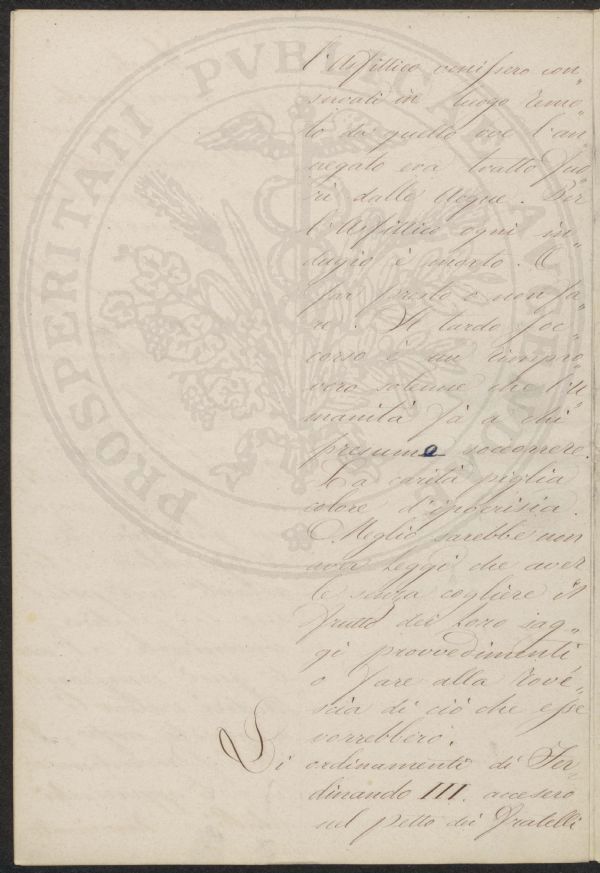 PROSPERITATI PVBLICAE AVGENDAE
l'Asfittico venissero con„
servati in luogo remo„
to da quello ove l'an„
negato era tratto fuo„
ri dalle Acque. Per
l'Asfittico ogni in„
dugio è morte. O
far presto o non fa„
re. Il tardo soc„
corso è un rimpro„
vero solenne che l'U„
manità fà a chi
presume soccorrere.
La carità piglia
colore d'ipocrisia.
Meglio sarebbe non
aver Leggi che aver
le senza cogliere il
frutto dei loro sag„
gi provvedimenti
o fare alla rove„
scia di ciò che esse
vorrebbero.
Gli ordinamenti di Fer„
dinando III. accesero
nel petto dei Fratelli